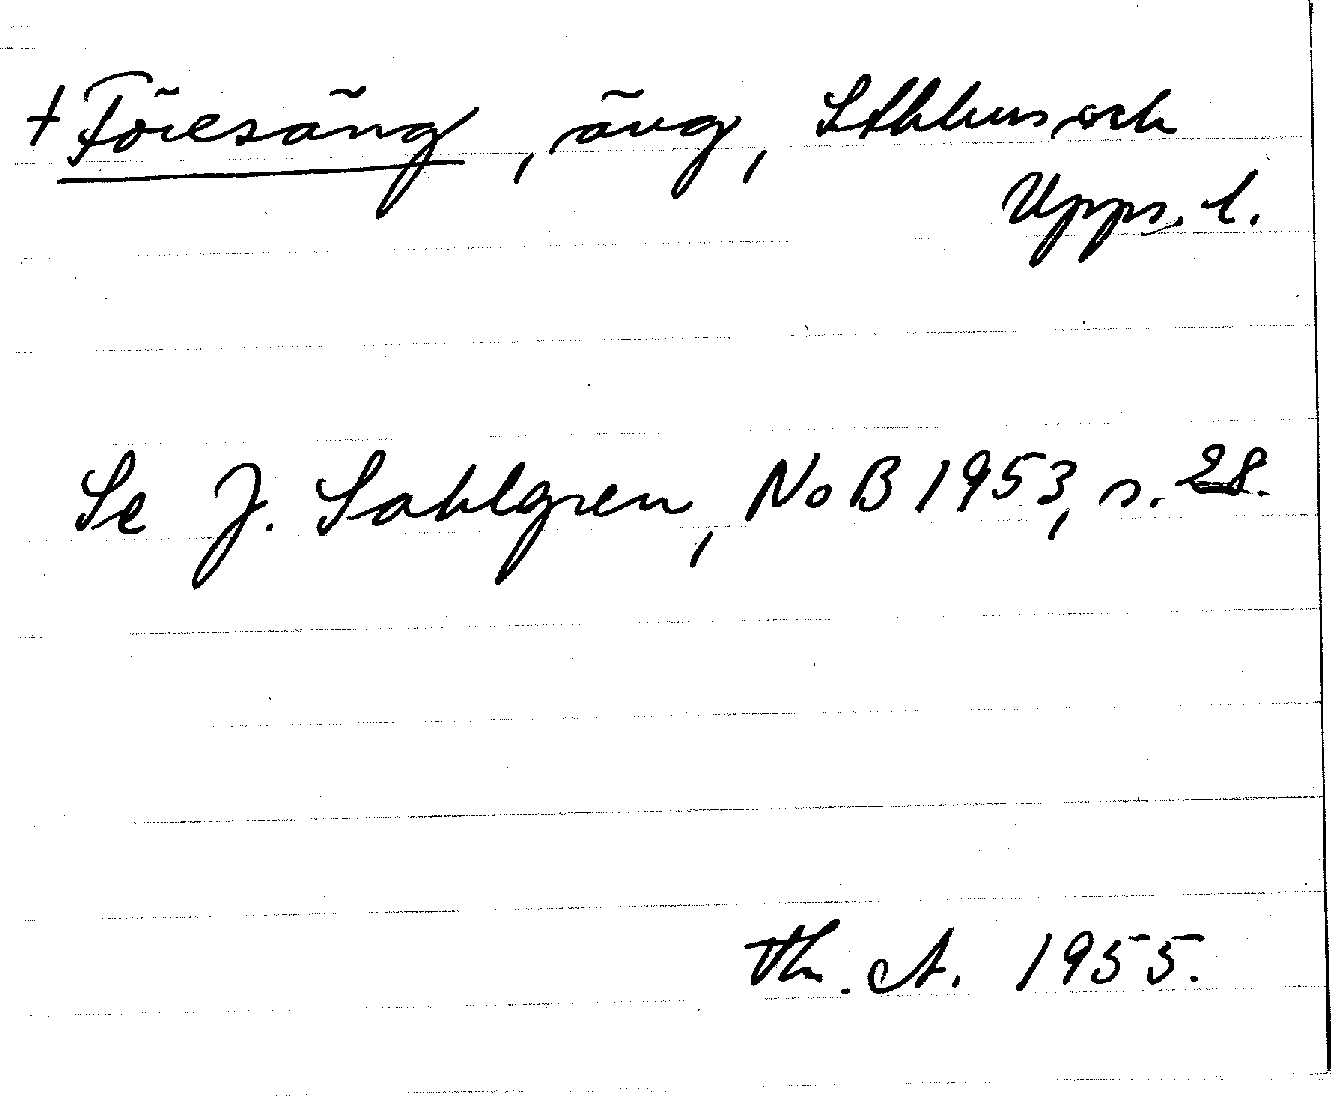 + Föresäng, äng, Sthlms och
Upps. l.
Se J. Sahlgren, NoB 1953, s. 28.
Th. A. 1955.